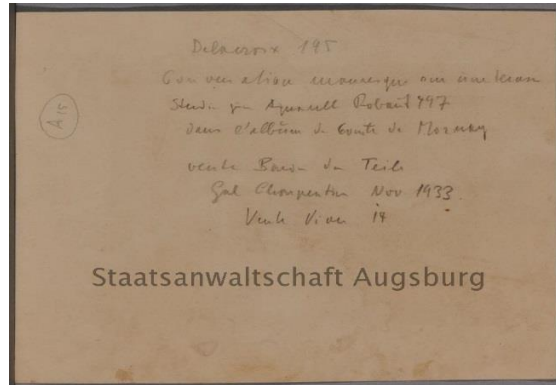 Delacroix 195
Conversation mauresque sur une terrasse
Studie zu Aquarell Robaut 497
dans l'album du Comte de Mornay
A 15
vente Baron du Teil
Gal Charpentier Nov 1933.
Vente 14
Staatsanwaltschaft Augsburg